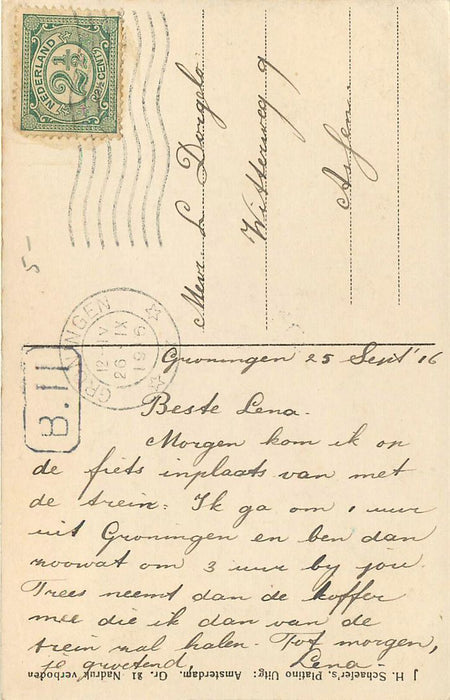 NEDERLAND
2½
2½ CENT
Mevr L Dorgelo
Witterweg 9
Assen
5-
GRONINGEN
12-1V
26 IX
1916
B.11
Groningen 25 Sept '16
Beste Lena.
Morgen kom ik op
de fiets inplaats van met
de trein. Ik ga om 1 uur
uit Groningen en ben dan
zoowat om 3 uur by jou.
Trees neemt dan de koffer
mee die ik dan van de
trein zal halen. Tot morgen,
je groetend, Lena-
J. H. Schaefer's, Platino Uitg: Amsterdam. Gr. 21 Nadruk verboden